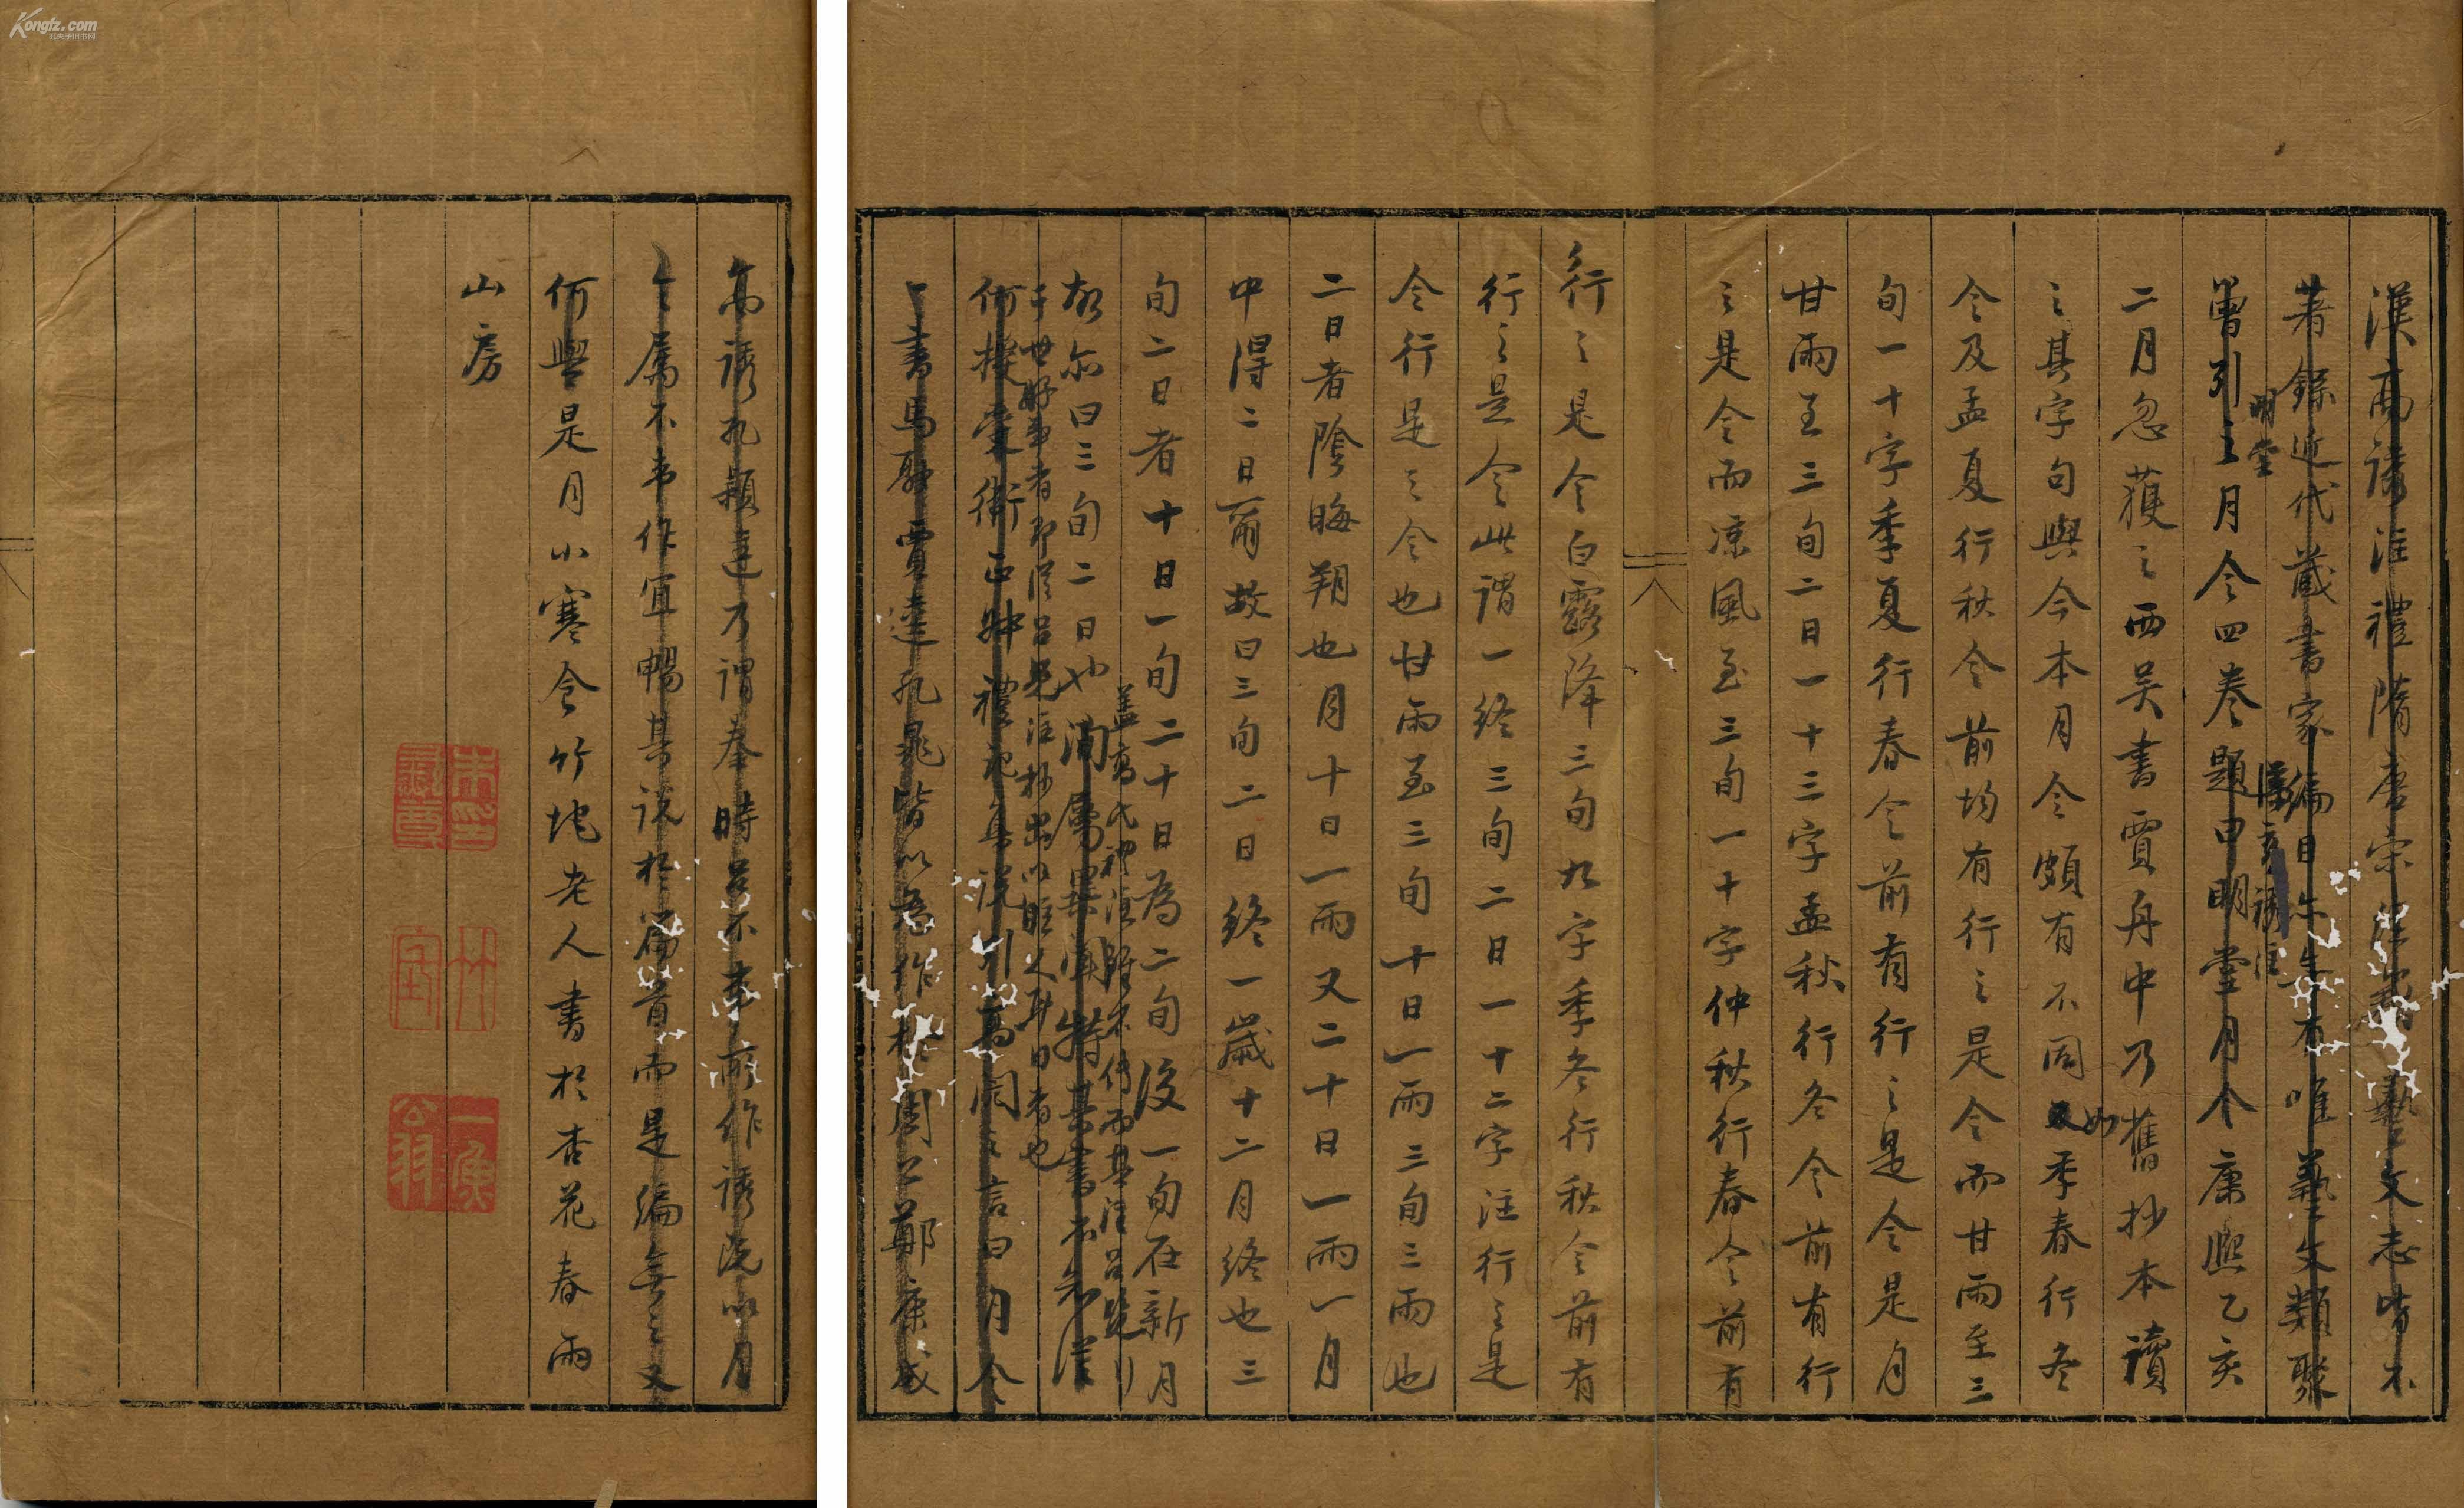 漢高誘注禮隋唐宋藝文志皆不
著錄近代藏書家編目亦未有唯藝文類聚
曽引之月令四卷題曰明堂月令康熙乙亥
明堂
漢高誘注
二月忽獲之西吴書賈舟中乃舊抄本讀
之其字句與今本月令頗有不同如季春行冬
令及孟夏行秋令前均有行之是令而甘雨至三
旬一十字季夏行春令前有行之是令是月
甘雨至三旬二日一十三字孟秋行冬令前有行
之是令而凉風至三旬一十字仲秋行春令前有
行之是令白露降三旬九字季冬行秋令前有
行之是令此謂一終三旬二日一十二字注行之是
令行是之令也甘雨至三旬十日一雨三旬三雨也
二日者陰晦朔也月十日一雨又二十日一雨一月
中得二日爾故曰三旬二日終一歲十二月終也三
旬二日者十日一旬二十日為二旬後一旬在新月
故尔曰三旬二日也
蓋高氏禮注雖不傳而其注吕覽
千世好事者即從吕覽注抄出以誑人耳目者也
何授受衛正叔禮記集說引高閌之言曰月令
一書馬融賈逵孔晁皆以為作於周公鄭康成
高誘孔穎達乃謂秦時吕不韋所作誘既以月
令屬不韋作宜暢其說於篇首而是編無之又
何與是月小寒食竹垞老人書於杏花春雨
山房
朱印彝尊
竹垞
Kongfz.com
孔夫子旧书网